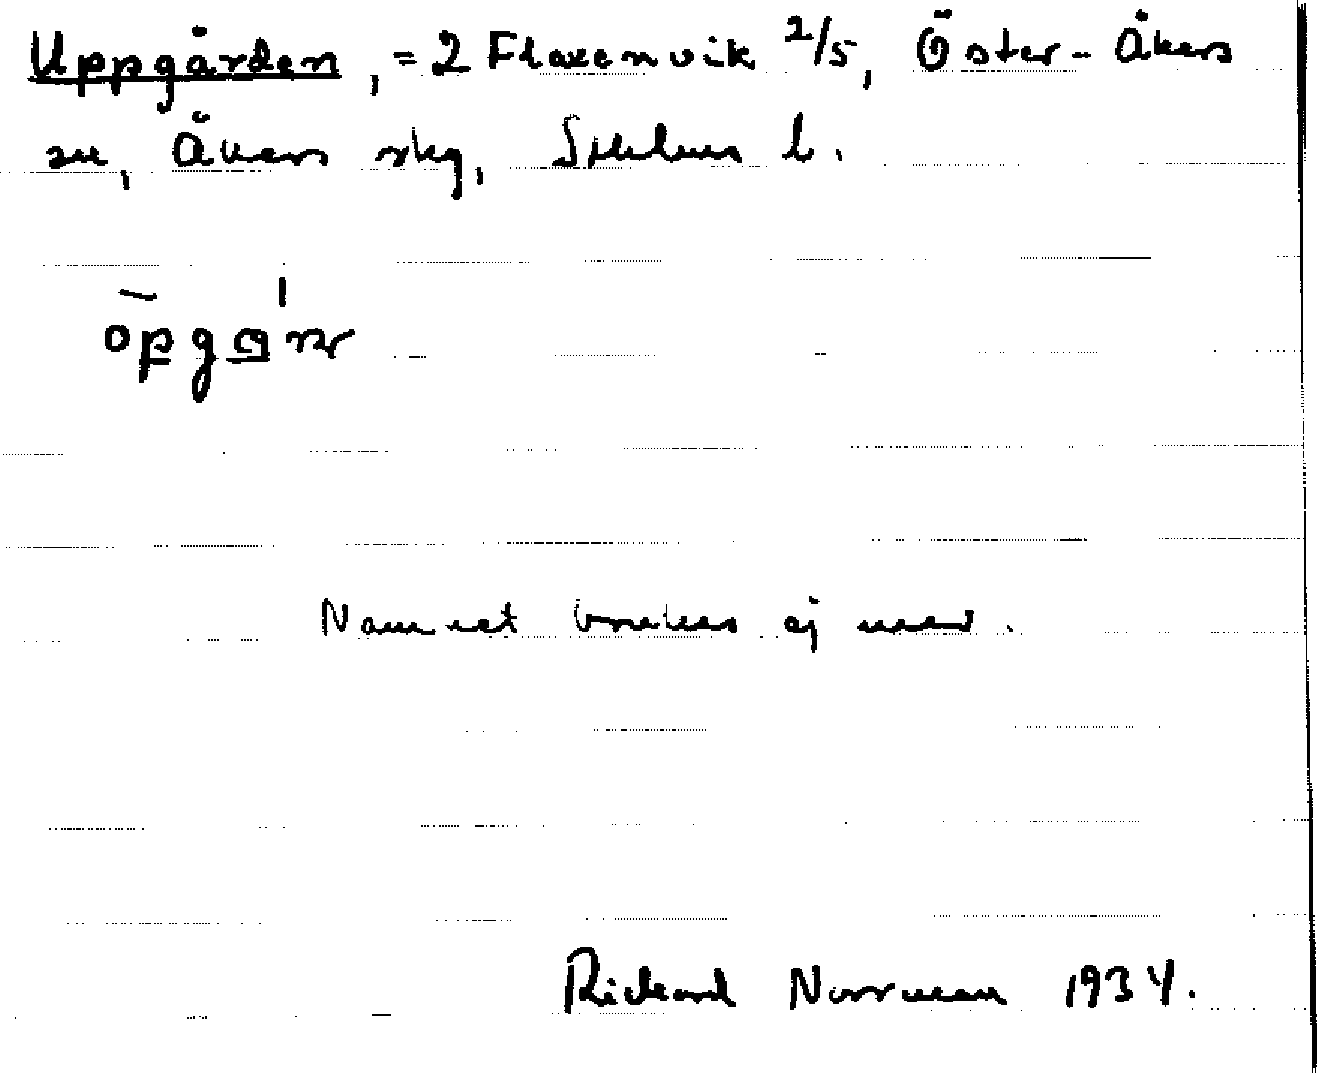 Uppgården, = 2 Flaxenvik 2/5, Öster-Åkers
sn, Åkers skg, Sthlms l.
opgɑnr
Namnet brukas ej mer.
Rickard Norrman 1934.